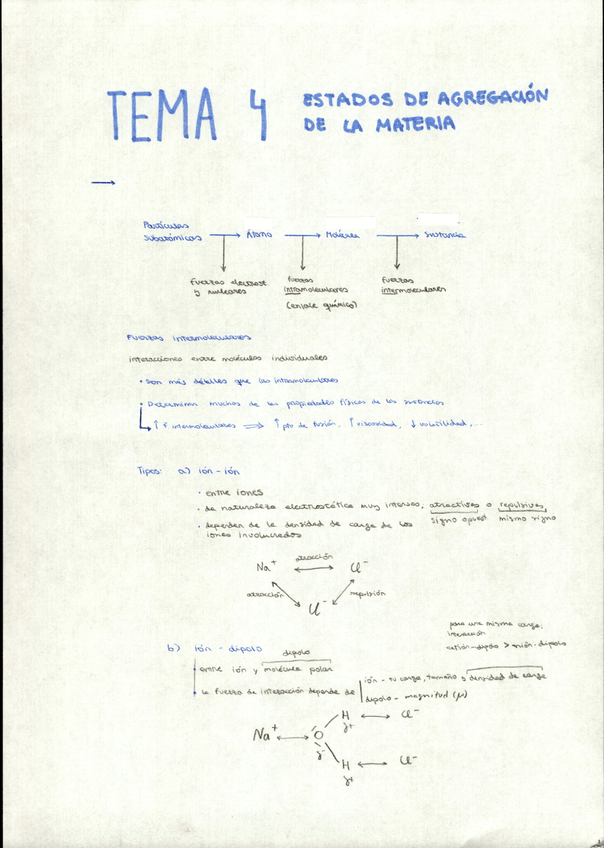 TEMA 4 ESTADOS DE AGREGACIÓN
DE LA MATERIA
→
Partículas
subatómicas → Átomo → Molécula → Sustancia
Fuerzas electrost
y nucleares
Fuerzas
intramoleculares
(enlace químico)
Fuerzas
intermoleculares
Fuerzas intermoleculares
interacciones entre moléculas individuales
• Son más débiles que las intramoleculares
• Determinan muchas de las propiedades físicas de las sustancias
↑ F intermoleculares ⇒ ↑ pto de fusión, ↑ viscosidad, ↓ volatilidad,...
Tipos: a) ión-ión
• entre iones
• de naturaleza electrostática muy intensas, atractivas o repulsivas
signo opuest mismo signo
• dependen de la densidad de carga de los
iones involucrados
atracción
Na⁺ ↔ Cl⁻
atracción repulsión
Cl⁻
para una misma carga,
interacción
catión-dipolo > anión-dipolo
b) ión - dipolo
dipolo
entre ión y molécula polar
• la fuerza de interacción depende de
ión - su carga, tamaño o densidad de carga
dipolo - magnitud (μ)
H ↔ Cl⁻
δ+
Na⁺ ↔ O
δ-
H ↔ Cl⁻
δ+